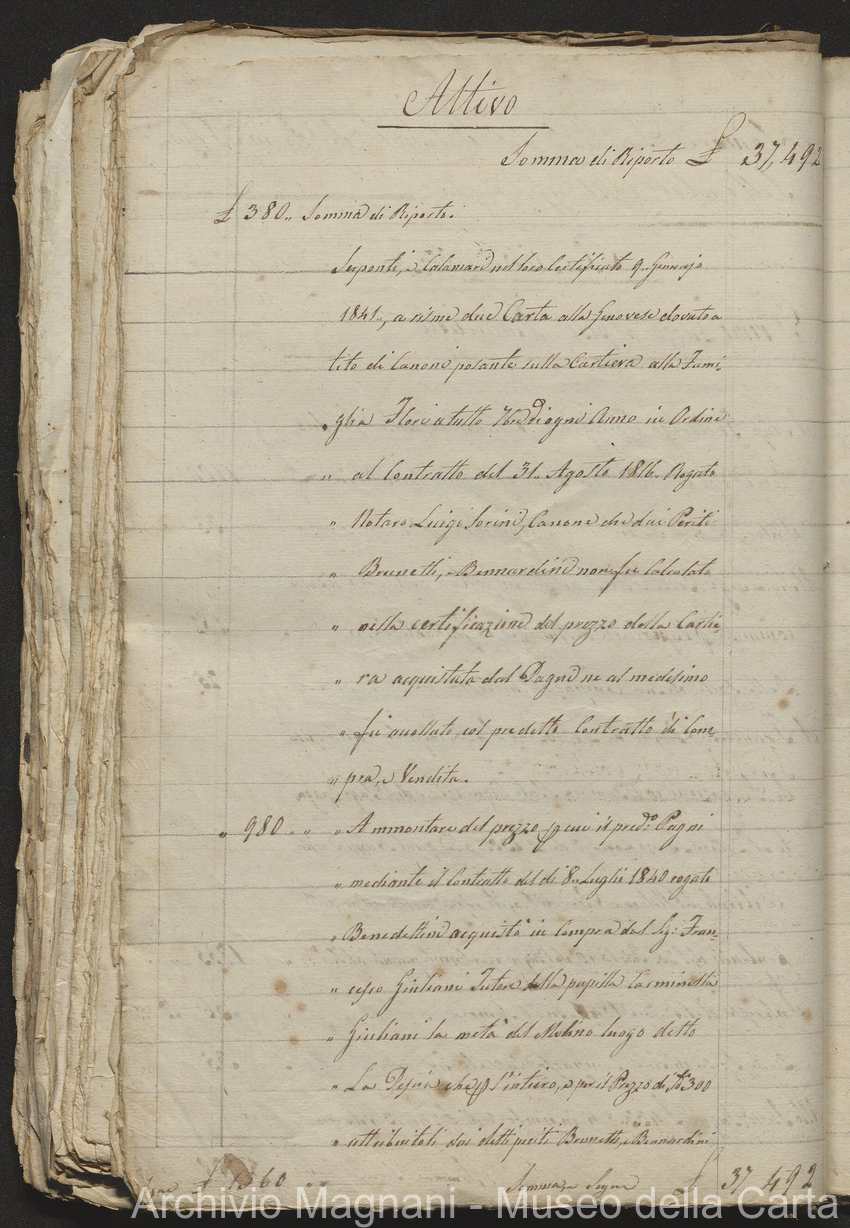 Attivo
Somma di Riporto £ 37,492
£ 380 „ Somma di Riporto.
Serponti, e Calamari nel loro Certificato 9„ Gennajo
1841„, a risme due Carta alla Genovese dovuto a
tito di Canoni posante sulla Cartiera alla Fami=
„ glia Flori a tutto 7bre di ogni Anno in Ordine
„ al Contratto del 31„ Agosto 1816„ Rogato
„ Notaro Luigi Sorini, Canone che dai Periti
„ Brunetti, e Bennardini non fu Calcolato
„ nella certificazione del prezzo della Cartie=
„ ra acquistata dal Pagni ne al medesimo
„ fu accollato col predetto Contratto di Com=
„ pra, e Vendita.
„ 980 „ „ „ Ammontare del prezzo p cui il pred.o Pagni
„ mediante il Contratto del dì 8„ Luglio 1840 rogato
„ Benedettini acquistò in Compra dal Sig: Fran=
„ cesco Giuliani Tutore della pupilla Carminetta
„ Giuliani la metà del Molino luogo detto
„ La che p l'intiero, e per il Prezzo di 300
„ attribuitoli dai detti periti Brunetti, e Bennardini
£ 1360 „ „ Somma, e Segue £ 37,492
Archivio Magnani - Museo della Carta